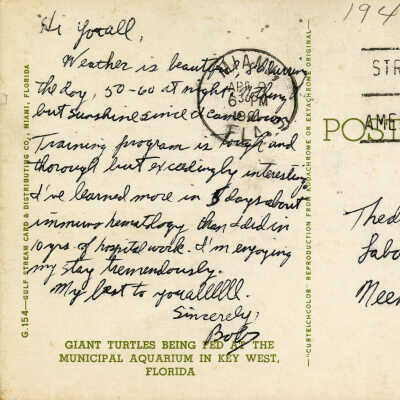 Hi You all,
Weather is beautiful, 80 during
the day, 50-60 at night. Nothing
but sunshine since I came down.
Training program is tough and
thorough but exceedingly interesting.
I've learned more in 5 days about
immunohemathogy than I did in
10 yrs of hospital work. I'm enjoying
my stay tremendously.
My best to youallllll.
Sincerely,
Bob
GIANT TURTLES BEING FED AT THE
MUNICIPAL AQUARIUM IN KEY WEST,
FLORIDA
G.154—GULF STREAM CARD & DISTRIBUTING CO., MIAMI, FLORIDA
MIAMI,
APR
6 30 PM
19
FLA.
"CURTEICHCOLOR" REPRODUCTION FROM KODACHROME OR EKTACHROME ORIGINAL—
194
STR
AME
POST
Thed
Labo
Meen